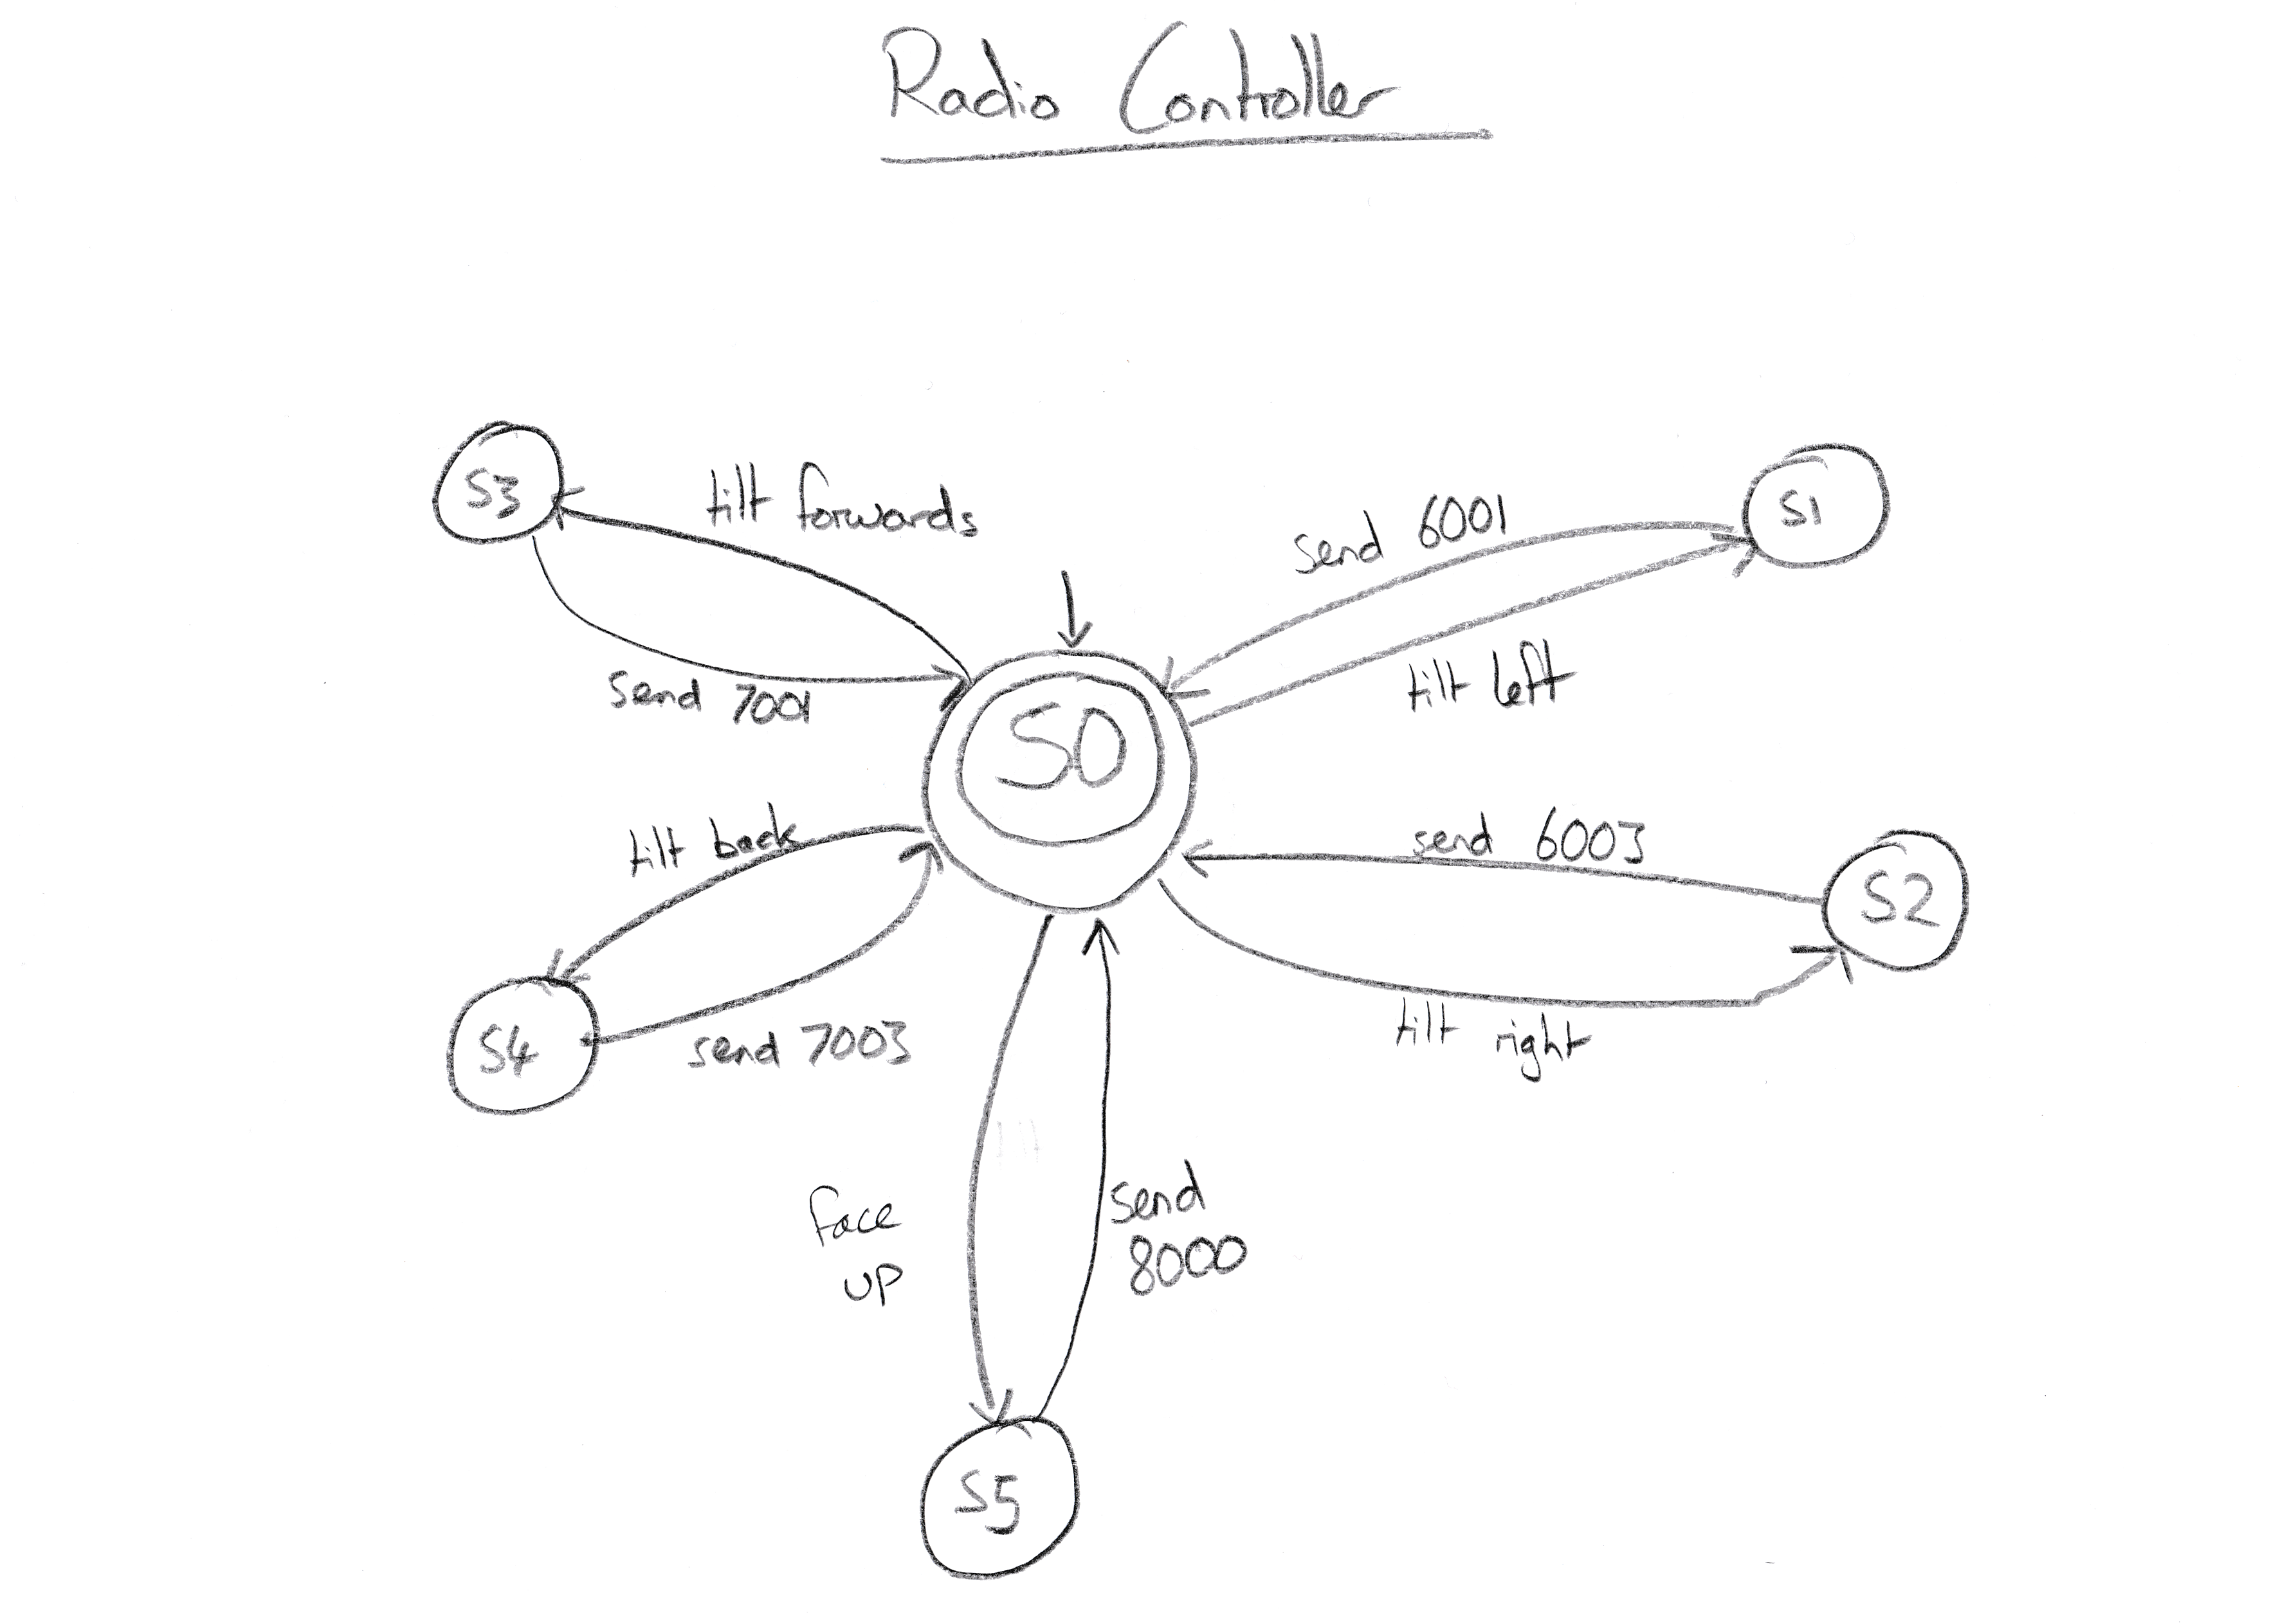 Radio Controller
S3
tilt forwards
send 7001
send 6001
S1
tilt left
S0
tilt back
send 7003
S4
send 6003
S2
tilt right
face
up
send
8000
S5